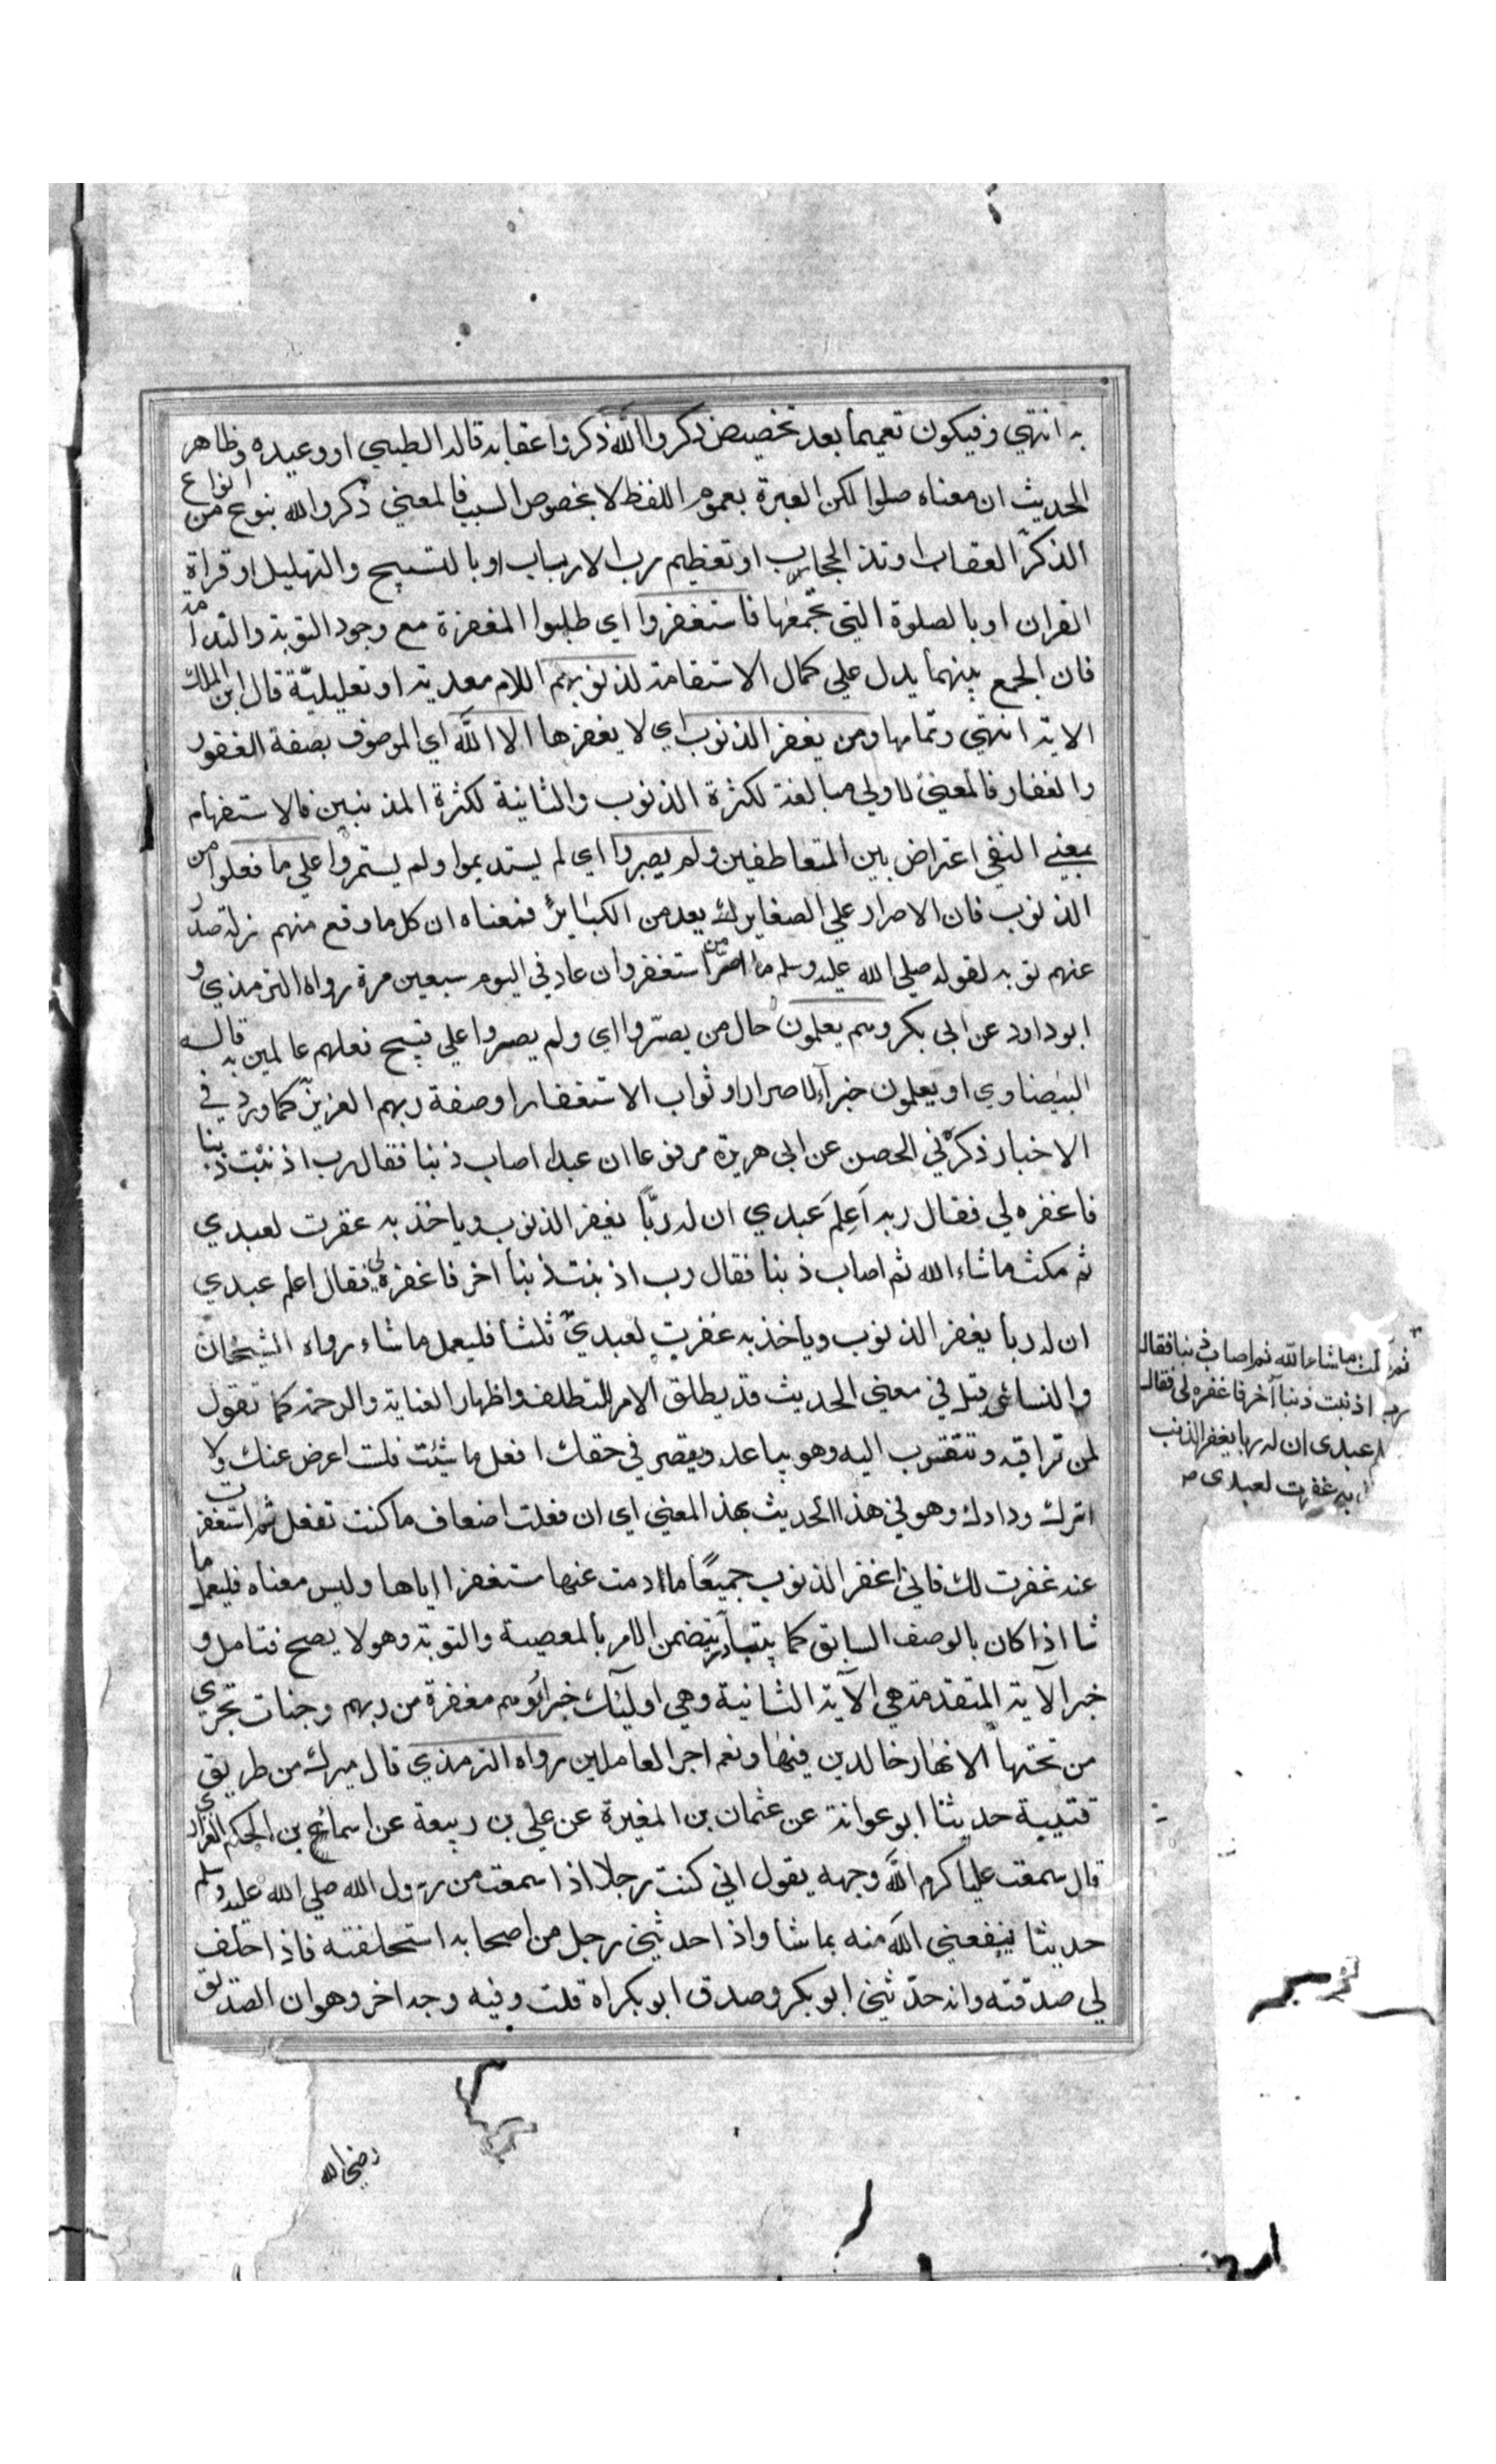 به انتهي وفيكون تعميما بعد تخصيص ذكروا الله ذكروا عقابه قاله الطيبي او وعيده وظاهر
الحديث ان معناه صلوا لكن العبرة بعموم اللفظ لا بخصوص السبب فالمعني ذكروا الله بنوع من انواع
الذكر العقاب او تذ الحجاب او تعظيم رب الارباب او بالتسبيح والتهليل او قراة
القران او بالصلوة التي تجمعها فاستغفروا اي طلبوا المغفرة مع وجود التوبة والندامة
فان الجمع بينهما يدل علي كمال الاستقامة لذنوبهم اللام معدية او تعليلية قال ابن الملك
الاية انتهي وتمامها ومن يغفر الذنوب اي لا يغفرها الا الله اي الموصوف بصفة الغفور
والغفار فالمعني للاولي مبالغة لكثرة الذنوب والثانية لكثرة المذنبين فالاستفهام
بمعني النفي اعتراض بين المتعاطفين ولم يصروا اي لم يستديموا ولم يستمروا علي ما فعلوا من
الذنوب فان الاصرار علي الصغاير يعد من الكبايز فمعناه ان كل ما وقع منهم زلة صدر
عنهم توبه لقوله صلي الله عليه وسلم ما اصر من استغفر وان عاد في اليوم سبعين مرة رواه الترمذي و
ابو داود عن ابي بكر وهم يعلمون حال من يصروا اي ولم يصروا علي قبيح فعلهم عالمين به قاله
البيضاوي او يعلمون جزآء الاصرار او ثواب الاستغفار او صفة ربهم العزيز كما ورد في
الاخبار ذكره في الحصن عن ابي هريرة مرفوعا ان عبدا اصاب ذنبا فقال رب اذنبت ذنبا
فاغفره لي فقال ربه اَعلِمَ عبدي ان له ربّاً يغفر الذنوب وياخذ به غفرت لعبدي
ثم مكث ما شاء الله ثم اصاب ذنبا فقال رب اذنبت ذنبا اخر فاغفره لي فقال اعلم عبدي
ان له ربا يغفر الذنوب وياخذ به غفرت لعبدي ثلثا فليعمل ما شاء رواه الشيخان
والنسائي قيل في معني الحديث قد يطلق الامر للتلطف واظهار العناية والرحمة كما تقول
لمن تراقبه وتتقرب اليه وهو يباعد ويقصر في حقك افعل ما شئت فلست اعرض عنك ولا
اترك ودادك وهو في هذا الحديث بهذا المعني اي ان فعلت اضعاف ما كنت تفعل ثم استغفرت
عنه غفرت لك فاني اغفر الذنوب جميعًا ما دمت عنها مستغفرا اياها وليس معناه فليعمل ما
شا اذا كان بالوصف السابق كما يتبادر يتضمن الامر بالمعصية والتوبة وهو لا يصح فتامل و
خبر الآية المتقدمة هي الآية الثانية وهي اوليٓك جزاؤهم مغفرة من ربهم وجنات تجري
من تحتها الانهار خالدين فيها ونعم اجر العاملين رواه الترمذي قال ميرك من طريق
قتيبة حدثنا ابو عوانة عن عثمان بن المغيرة عن علي بن ربيعة عن اسماع بن الحكم الفزاري
قال سمعت عليا كرم الله وجهه يقول اني كنت رجلا اذا سمعت من رسول الله صلي الله عليه وسلم
حديثا ينفعني الله منه بما شا واذا حدثني رجل من اصحابه استحلفته فاذا حلف
لي صدقته وانه حدّثني ابو بكر وصدق ابو بكر اه قلت وفيه وجه اخر وهو ان الصديق
رضي الله
ثم ما شاء الله ثم اصاب ذنبا فقال
رب اذنبت ذنبا آخر فاغفره لي فقال
عبدي ان له ربا يغفر الذنب
به غفرت لعبدي